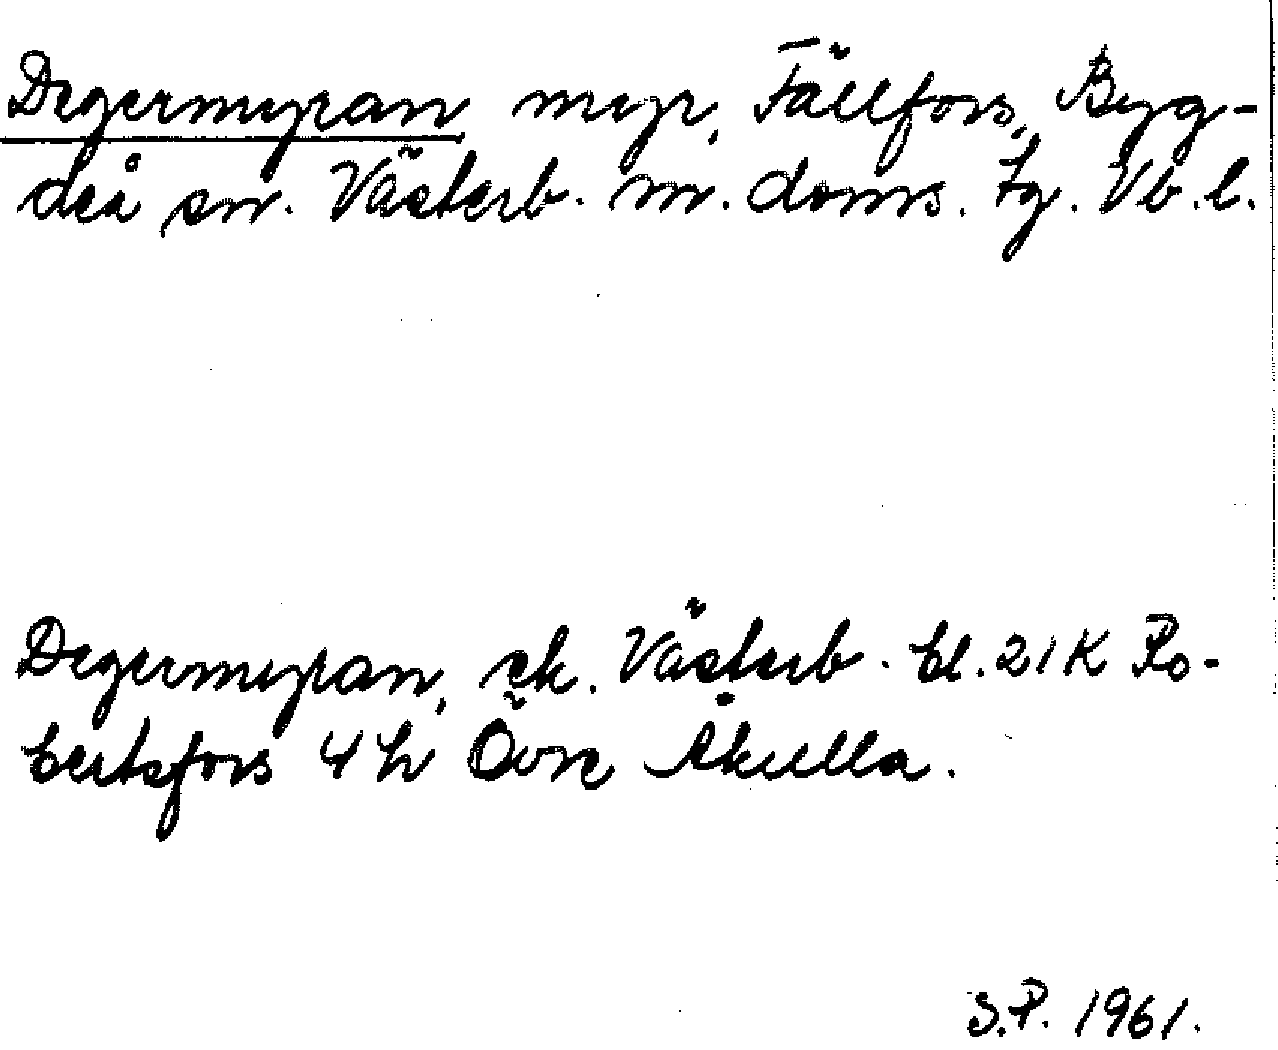 Degermyran myr, Fällfors, Byg-
deå sn. Västerb. m. doms. tg. Vb. l.
Degermyran, ek. Västerb. bl. 21K Ro-
bertsfors 4h Övre Åkulla.
S.P. 1961.